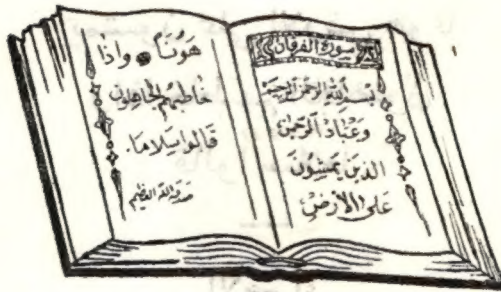 سورة الفرقان
بسم الله الرحمن الرحيم
وعباد الرحمن
الذين يمشون
على الأرض
هونا وإذا
خاطبهم الجاهلون
قالوا سلاما.
صدق الله العظيم